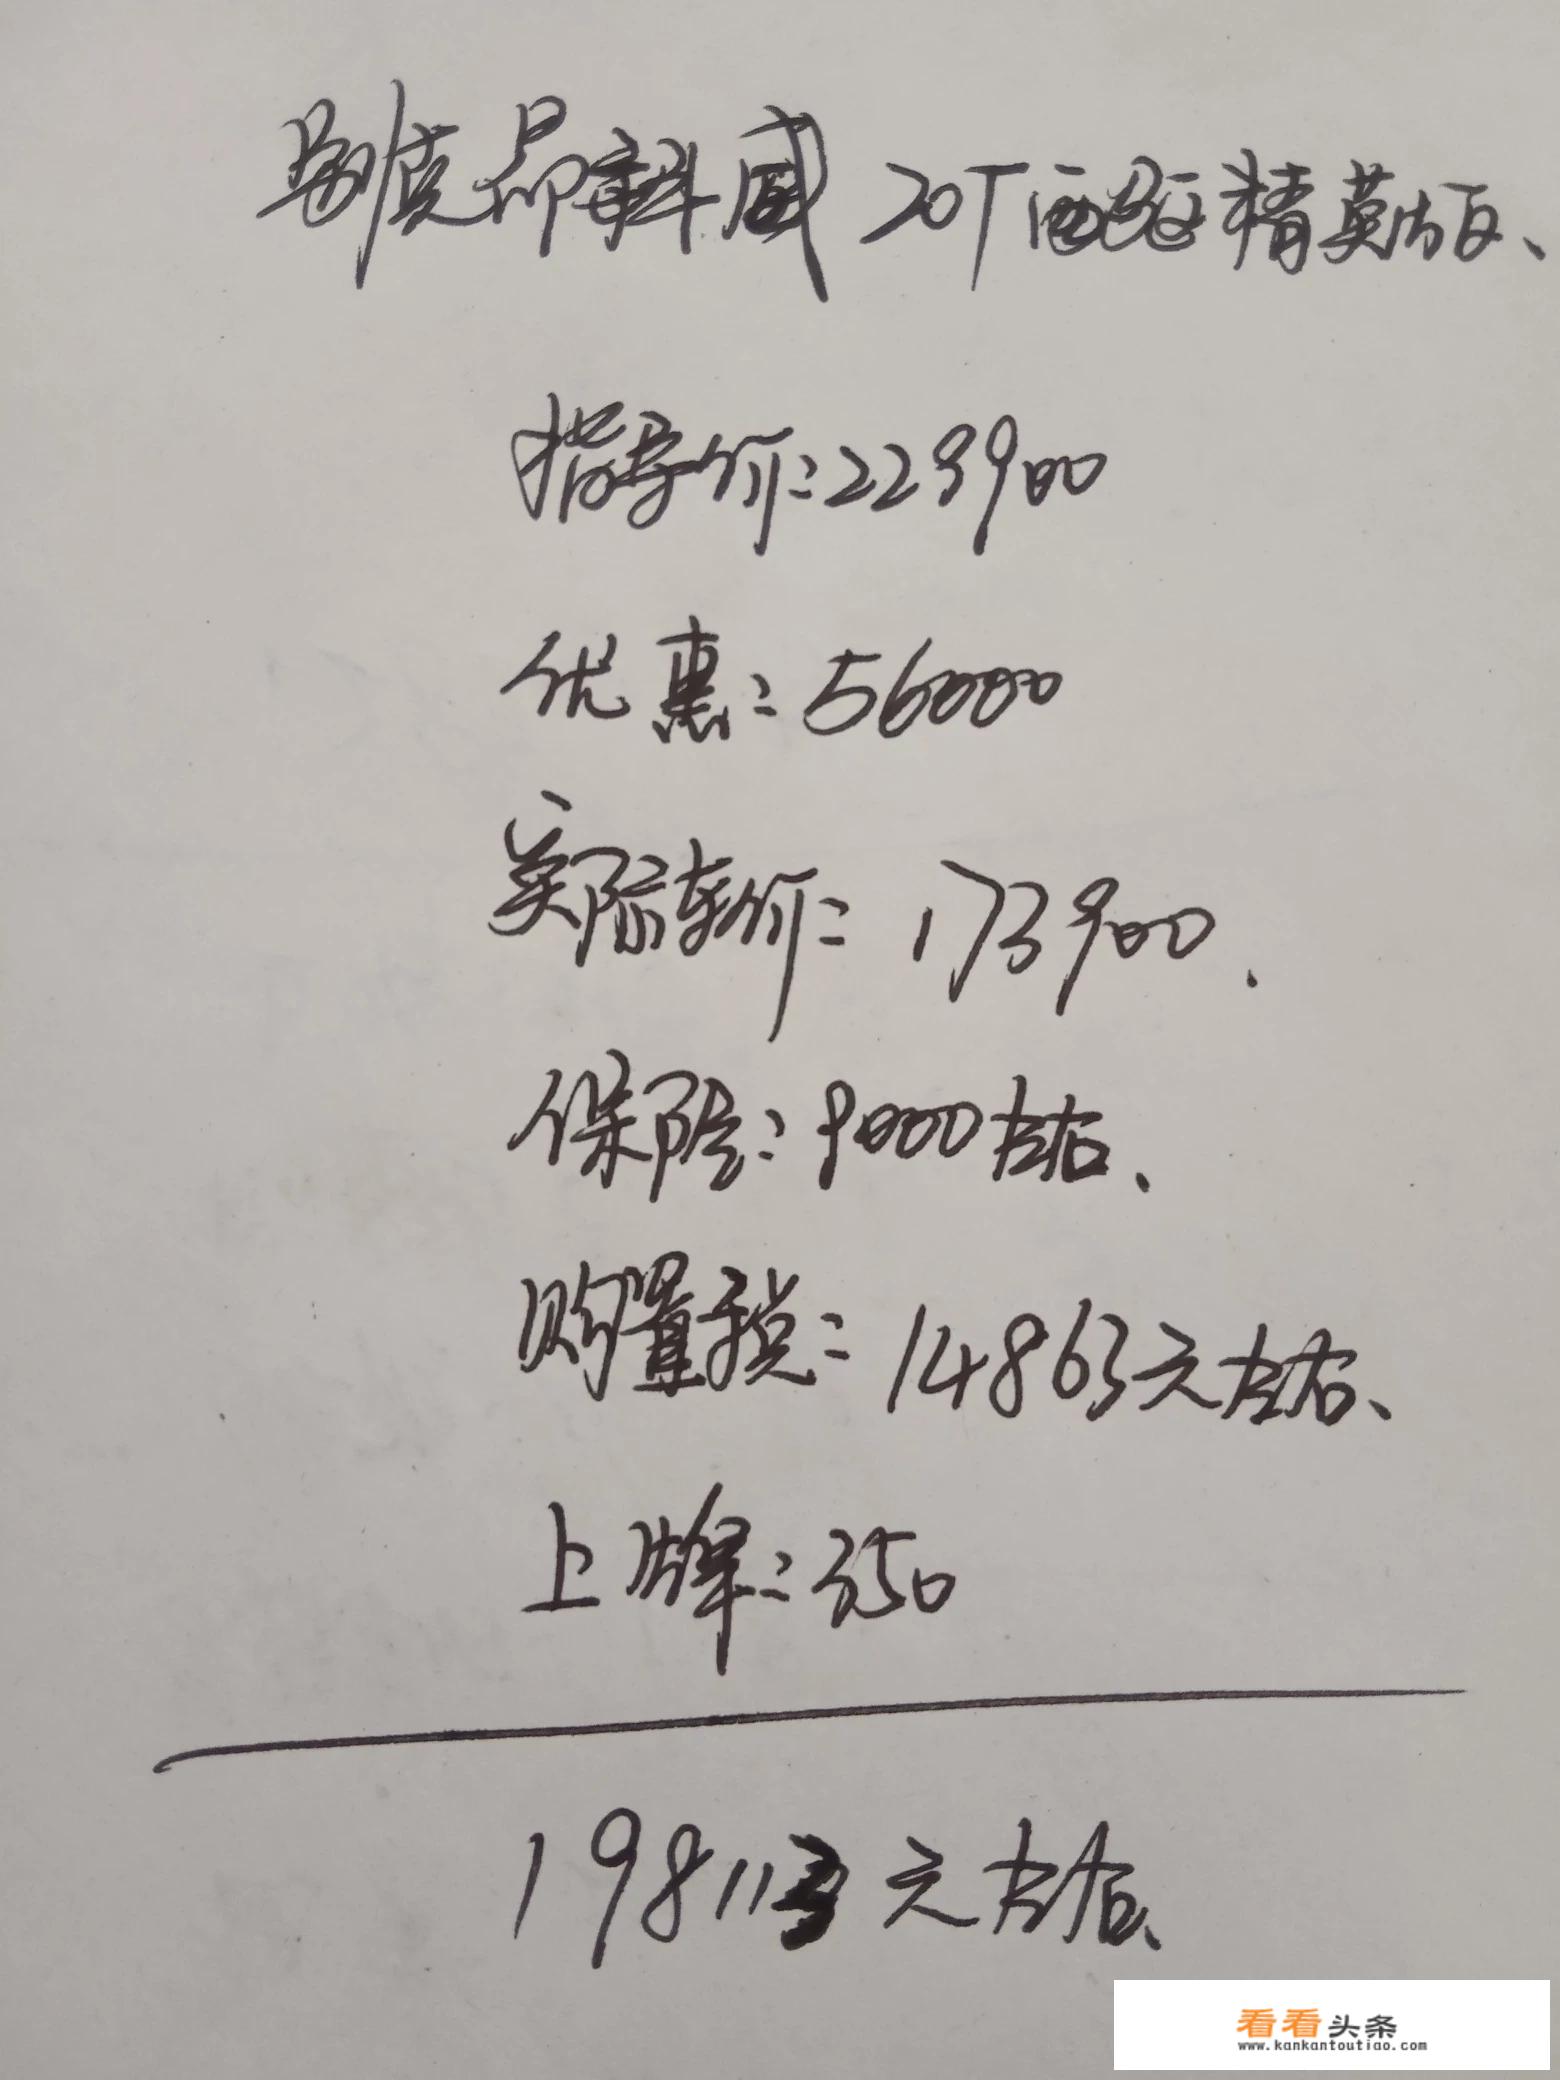 别克昂科威 20T 两驱精英版、
指导价：229900
优惠：56000
实际车价：173900.
保险：9000左右、
购置税：14863元左右、
上牌：350
198113元左右、
看看头条
www.kankantoutiao.com